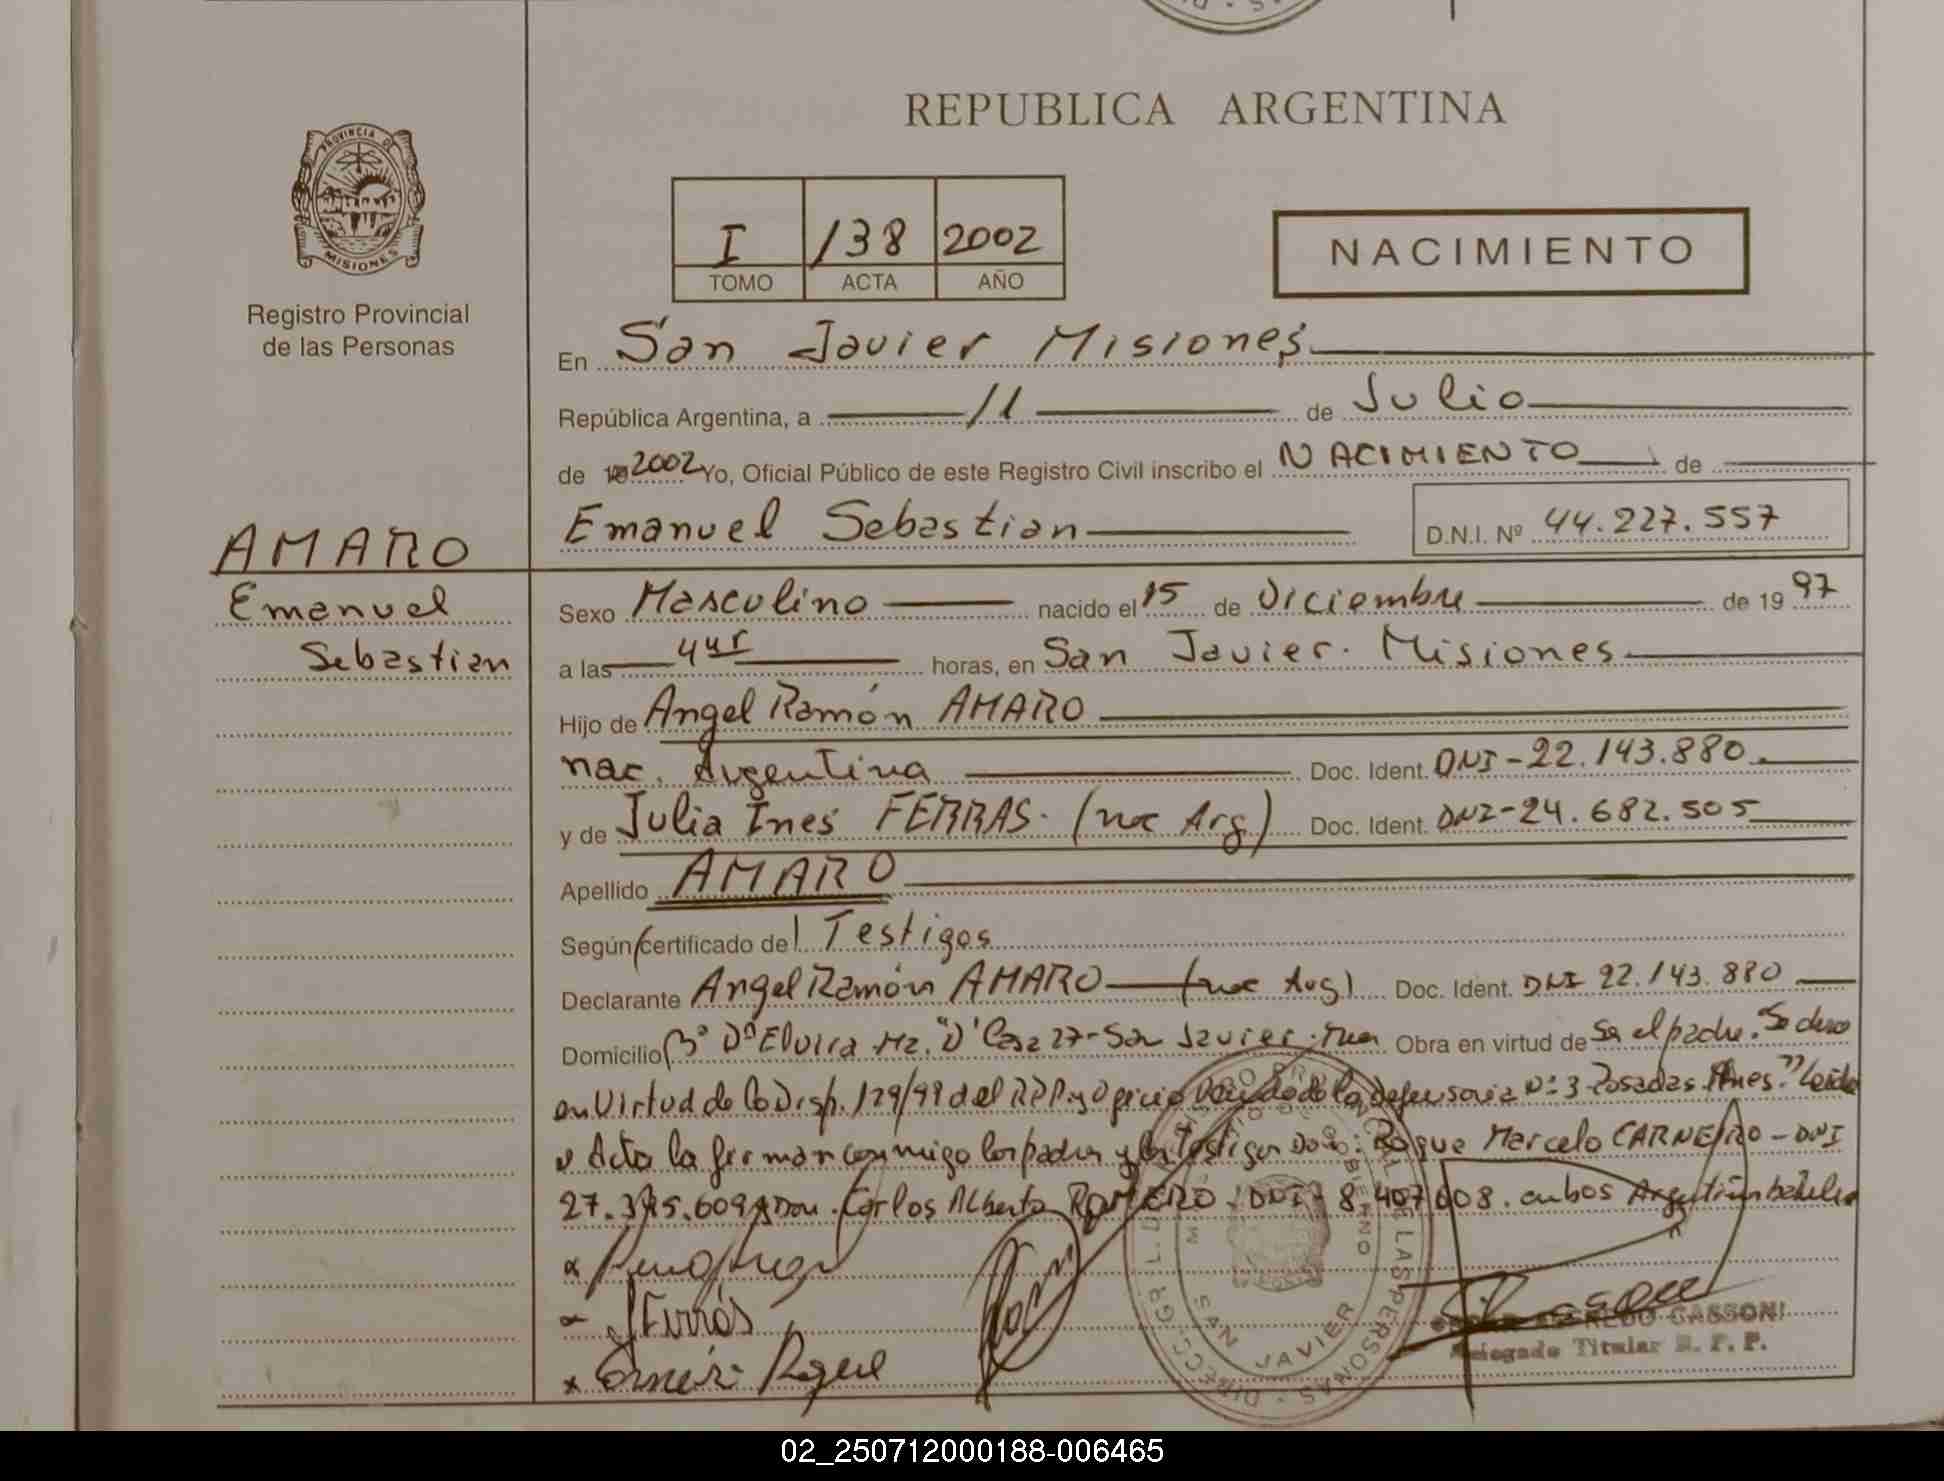 REPUBLICA ARGENTINA
PROVINCIA DE MISIONES
Registro Provincial
de las Personas
I /38 2002
TOMO ACTA AÑO
NACIMIENTO
En San Javier Misiones
República Argentina, a 11 de Julio
de 2002 Yo, Oficial Público de este Registro Civil inscribo el NACIMIENTO de
Emanuel Sebastian D.N.I. Nº 44.227.557
AMARO
Emanuel
Sebastian
Sexo Masculino nacido el 15 de Diciembre de 19 97
a las horas, en San Javier. Misiones
Hijo de Angel Ramón AMARO
nac. Argentina Doc. Ident. DNI-22.143.880
y de Julia Ines FERRAS. (nac Arg) Doc. Ident. DNI-24.682.505
Apellido AMARO
Según certificado del Testigos
Declarante Angel Ramón AMARO (nac Arg) Doc. Ident. DNI 22.143.880
Domicilio Bº Dª Elvira Mz. "D" Casa 27-San Javier. Mnes Obra en virtud de Ser el padre.
en Virtud de la Disp. 129/99 del RPP y Oficio de la defensoria Nº 3 Posadas Mnes." Leida
el Acta la firman conmigo los padres y los testigos Don: Roque Marcelo CARNEIRO - DNI
y Don. Carlos Alberto ROMERO. DNI- 8.407.608. ambos
J Ferrás
SAN JAVIER
GASSONI
Delegado Titular R. P. P.
02_250712000188-006465